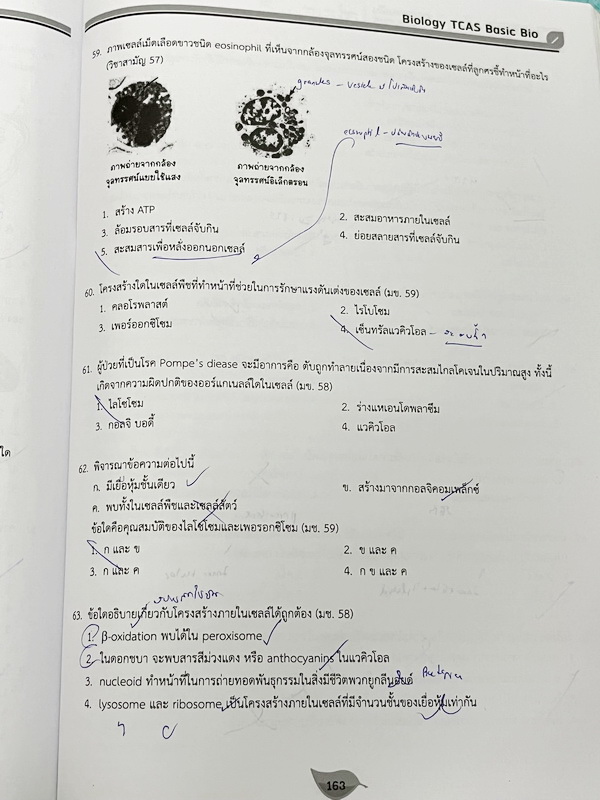 Biology TCAS Basic Bio
59. ภาพเซลล์เม็ดเลือดขาวชนิด eosinophil ที่เห็นจากกล้องจุลทรรศน์สองชนิด โครงสร้างของเซลล์ที่ลูกศรชี้ทำหน้าที่อะไร
(วิชาสามัญ 57)
granules –
ภาพถ่ายจากกล้อง
จุลทรรศน์แบบใช้แสง
ภาพถ่ายจากกล้อง
จุลทรรศน์อิเล็กตรอน
1. สร้าง ATP
2. สะสมอาหารภายในเซลล์
3. ล้อมรอบสารที่เซลล์จับกิน
4. ย่อยสลายสารที่เซลล์จับกิน
5. สะสมสารเพื่อหลั่งออกนอกเซลล์
60. โครงสร้างใดในเซลล์พืชที่ทำหน้าที่ช่วยในการรักษาแรงดันเต่งของเซลล์ (มข. 59)
1. คลอโรพลาสต์
2. ไรโบโซม
3. เพอร์ออกซิโซม
4. เซ็นทรัลแวคิวโอล –
61. ผู้ป่วยที่เป็นโรค Pompe's diease จะมีอาการคือ ตับถูกทำลายเนื่องจากมีการสะสมไกลโคเจนในปริมาณสูง ทั้งนี้
เกิดจากความผิดปกติของออร์แกเนลล์ใดในเซลล์ (มข. 58)
1. ไลโซโซม
2. ร่างแหเอนโดพลาซึม
3. กอลจิ บอดี้
4. แวคิวโอล
62. พิจารณาข้อความต่อไปนี้
ก. มีเยื่อหุ้มชั้นเดียว
ข. สร้างมาจากกอลจิคอมเพล็กซ์
ค. พบทั้งในเซลล์พืชและเซลล์สัตว์
ข้อใดคือคุณสมบัติของไลโซโซมและเพอรอกซิโซม (มข. 59)
1. ก และ ข
2. ข และ ค
3. ก และ ค
4. ก ข และ ค
63. ข้อใดอธิบายเกี่ยวกับโครงสร้างภายในเซลล์ได้ถูกต้อง (มข. 58)
1. β-oxidation พบได้ใน peroxisome
2. ในดอกชบา จะพบสารสีม่วงแดง หรือ anthocyanins ในแวคิวโอล
3. nucleoid ทำหน้าที่ในการถ่ายทอดพันธุกรรมในสิ่งมีชีวิตพวกยูกลีนอยด์
4. lysosome และ ribosome เป็นโครงสร้างภายในเซลล์ที่มีจำนวนชั้นของเยื่อหุ้มเท่ากัน
163